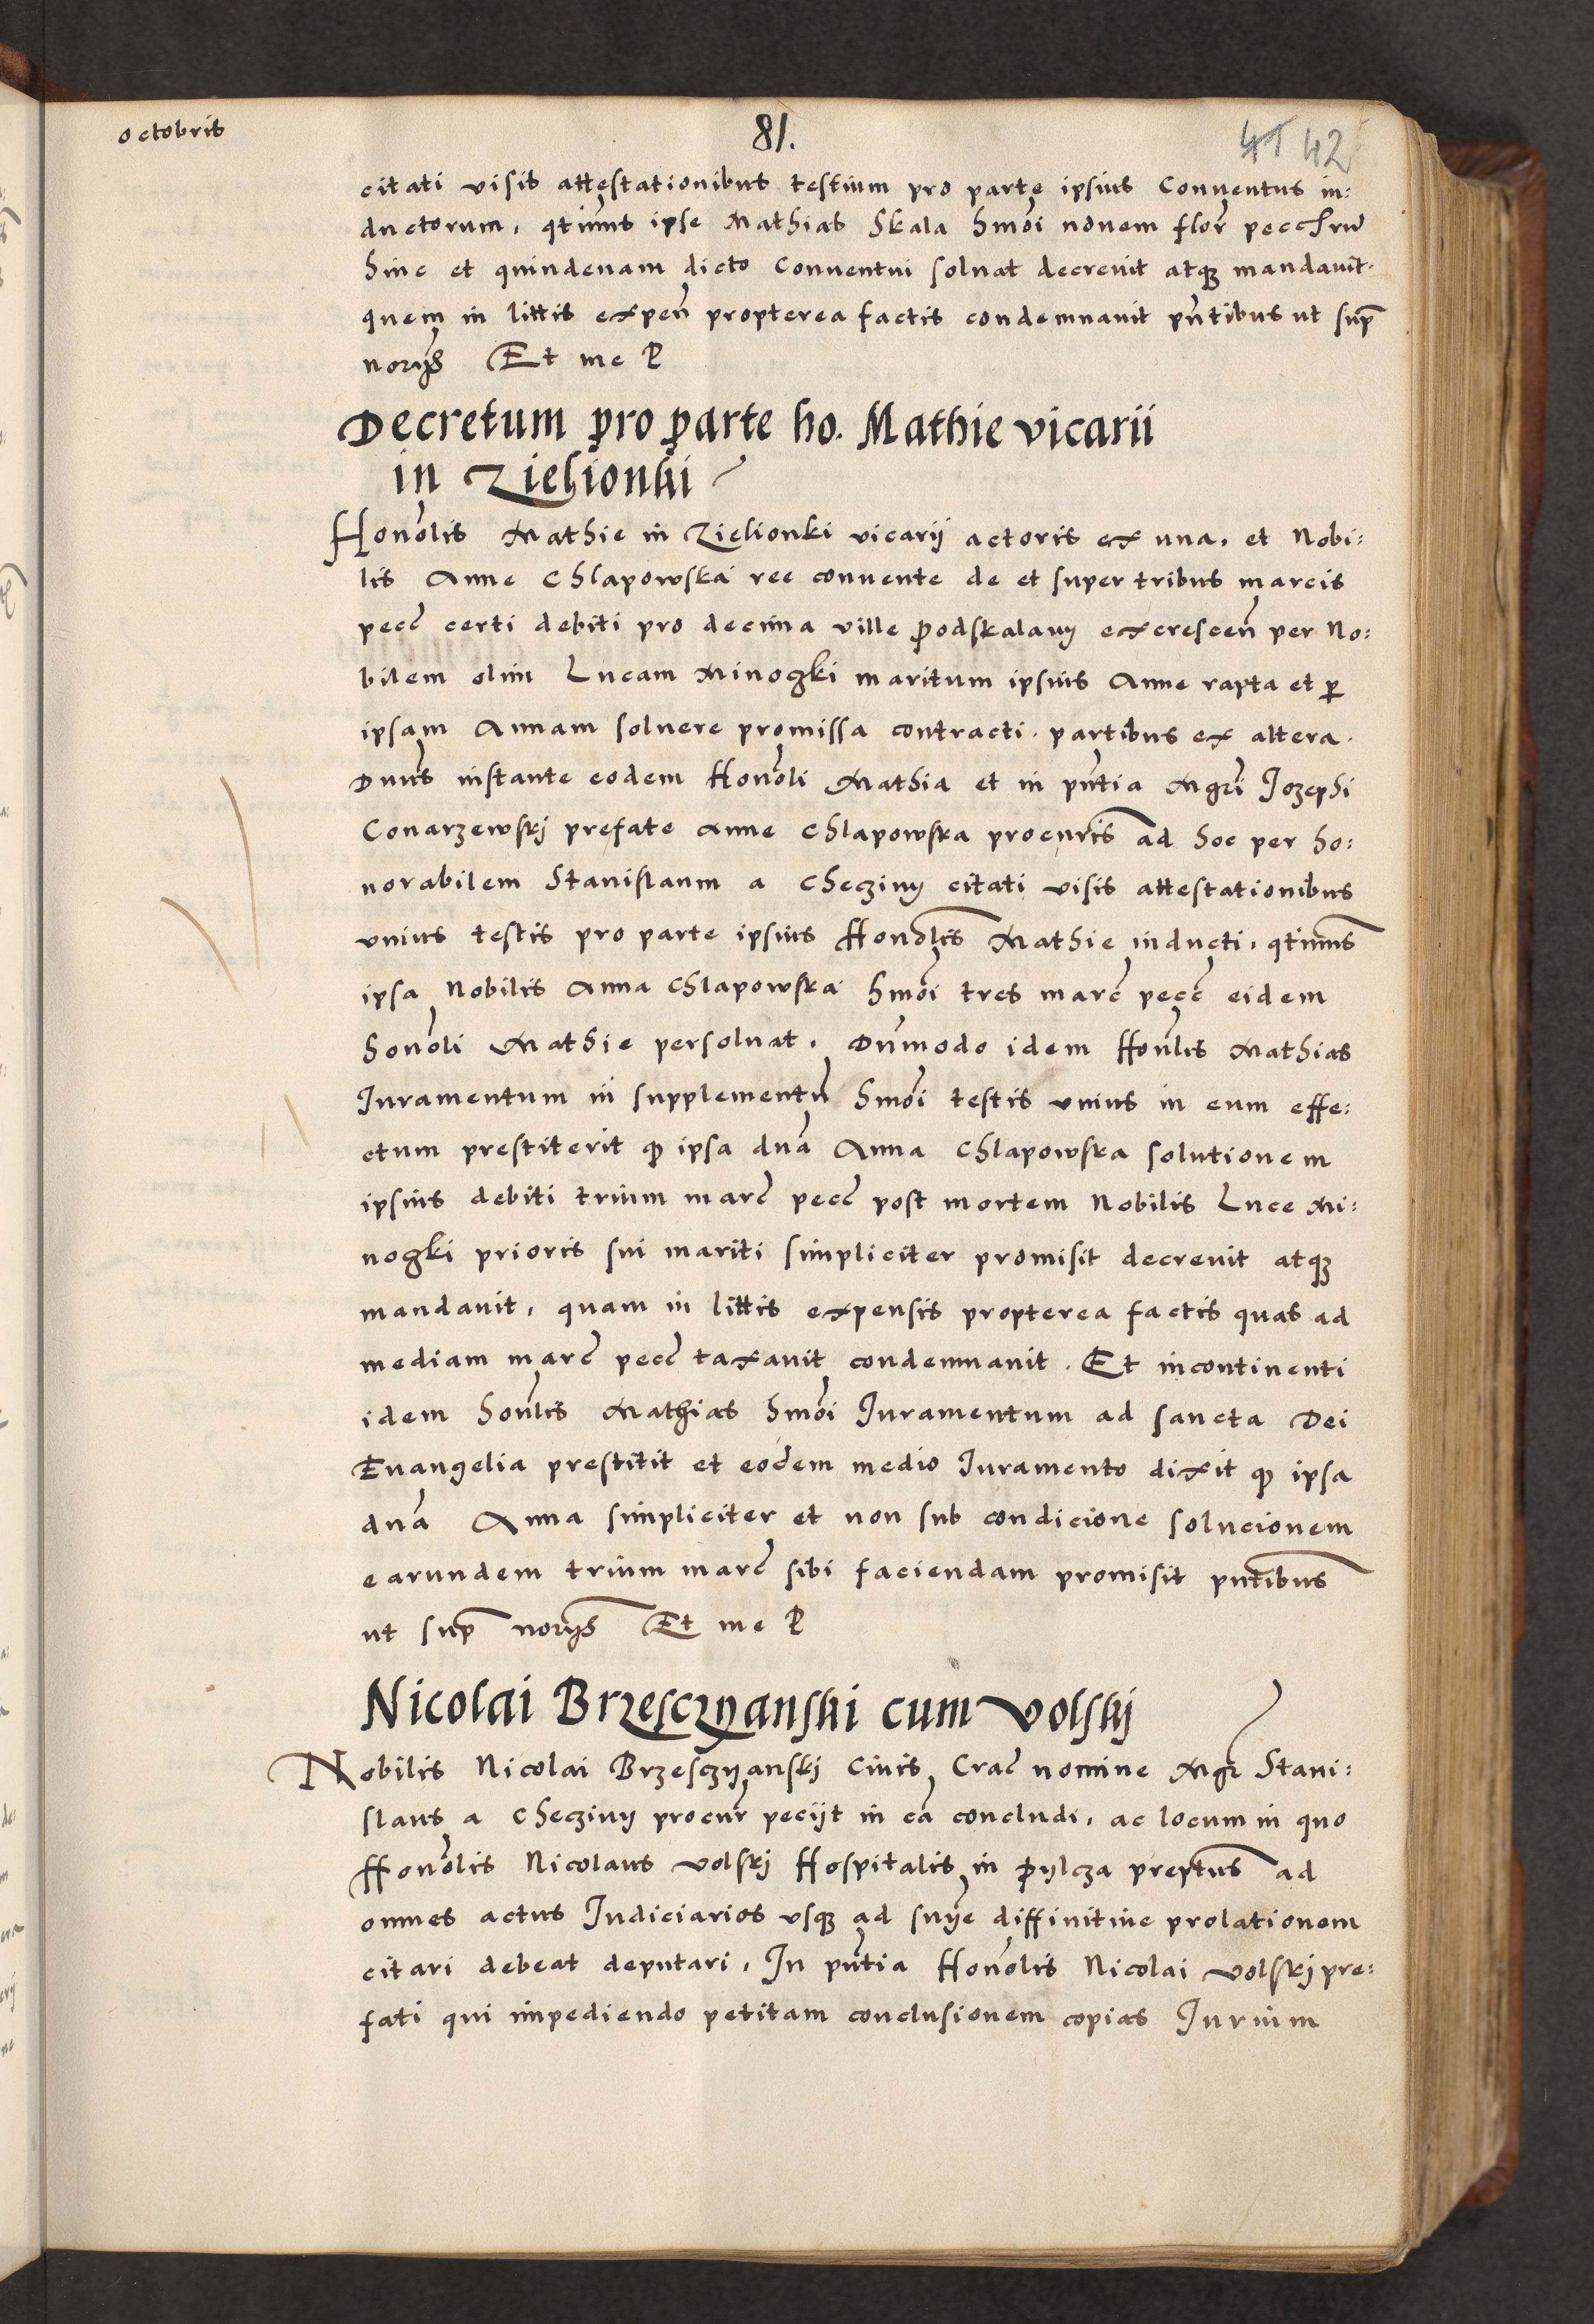 octobris
81.
41 42
citati visis attestationibus testium pro parte ipsius Conventus in:
ductorum, qtinus ipse Mathias Skala hmõi novem flor pecc
hinc et quindenam dicto Conventui solvat decrevit atqꝫ mandavit.
quem in littis expeñ propterea factis condemnavit pñtibus ut sup
norijs Et me P
Decretum pro parte ho. Mathie vicarii
in Zielionki
Honolis Mathie in Zielionki vicarij actoris ex una, et Nobi:
lis Anne Chlapowska ree convente de et super tribus marcis
pecc certi debiti pro decima ville Podskalany excrescen per No:
bilem olim Lucam Minogki maritum ipsius Anne rapta et per
ipsam Annam solvere promissa contracti. partibus ex altera.
Dnus instante eodem Honoli Mathia et in pñtia Mgri Jozephi
Conarzewskj prefate Anne Chlapowska procuris ad hoc per ho:
norabilem Stanislaum a Checziny citati visis attestationibus
unius testis pro parte ipsius Honolis Mathie inducti, qtinus
ipsa Nobilis Anna Chlapowska hmõi tres marc pecc eidem
honoli Mathie persolvat. Dummodo idem Honlis Mathias
Juramentum in supplementũ hmõi testis unius in eum effe:
ctum prestiterit qꝫ ipsa dnã Anna Chlapowska solutionem
ipsius debiti trium marc pecc post mortem Nobilis Luce Mi:
nogki prioris sui mariti simpliciter promisit decrevit atqꝫ
mandavit, quam in littis expensis propterea factis quas ad
mediam marc pecc taxavit condemnavit. Et incontinenti
idem honlis Mathias hmõi Juramentum ad sancta Dei
Evangelia prestitit et eodem medio Juramento dixit qꝫ ipsa
dnã Anna simpliciter et non sub condicione solucionem
earundem trium marc sibi faciendam promisit pñtibus
ut sup norijs Et me P
Nicolai Brzesczyanski cum Volskij
Nobilis Nicolai Brzesczyanskj Civis Crac nomine Mgr Stani:
slaus a Checziny procur peciit in cã concludi, ac locum in quo
Honolis Nicolaus Volskj Hospitalis in Pylcza preptus ad
omnes actus Judiciarios usqꝫ ad snije diffinitive prolationem
citari debeat deputari, In pñtia Honolis Nicolai Volskj pre:
fati qui impediendo petitam conclusionem copias Jurium